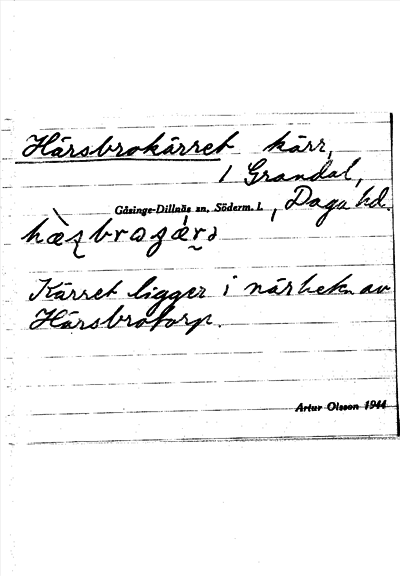 Härsbrokärret kärr,
1 Grandal,
Gåsinge-Dillnäs sn, Söderm. l., Daga hd.
Kärret ligger i närhetn av
Härsbrotorp.
Artur Olsson 1944